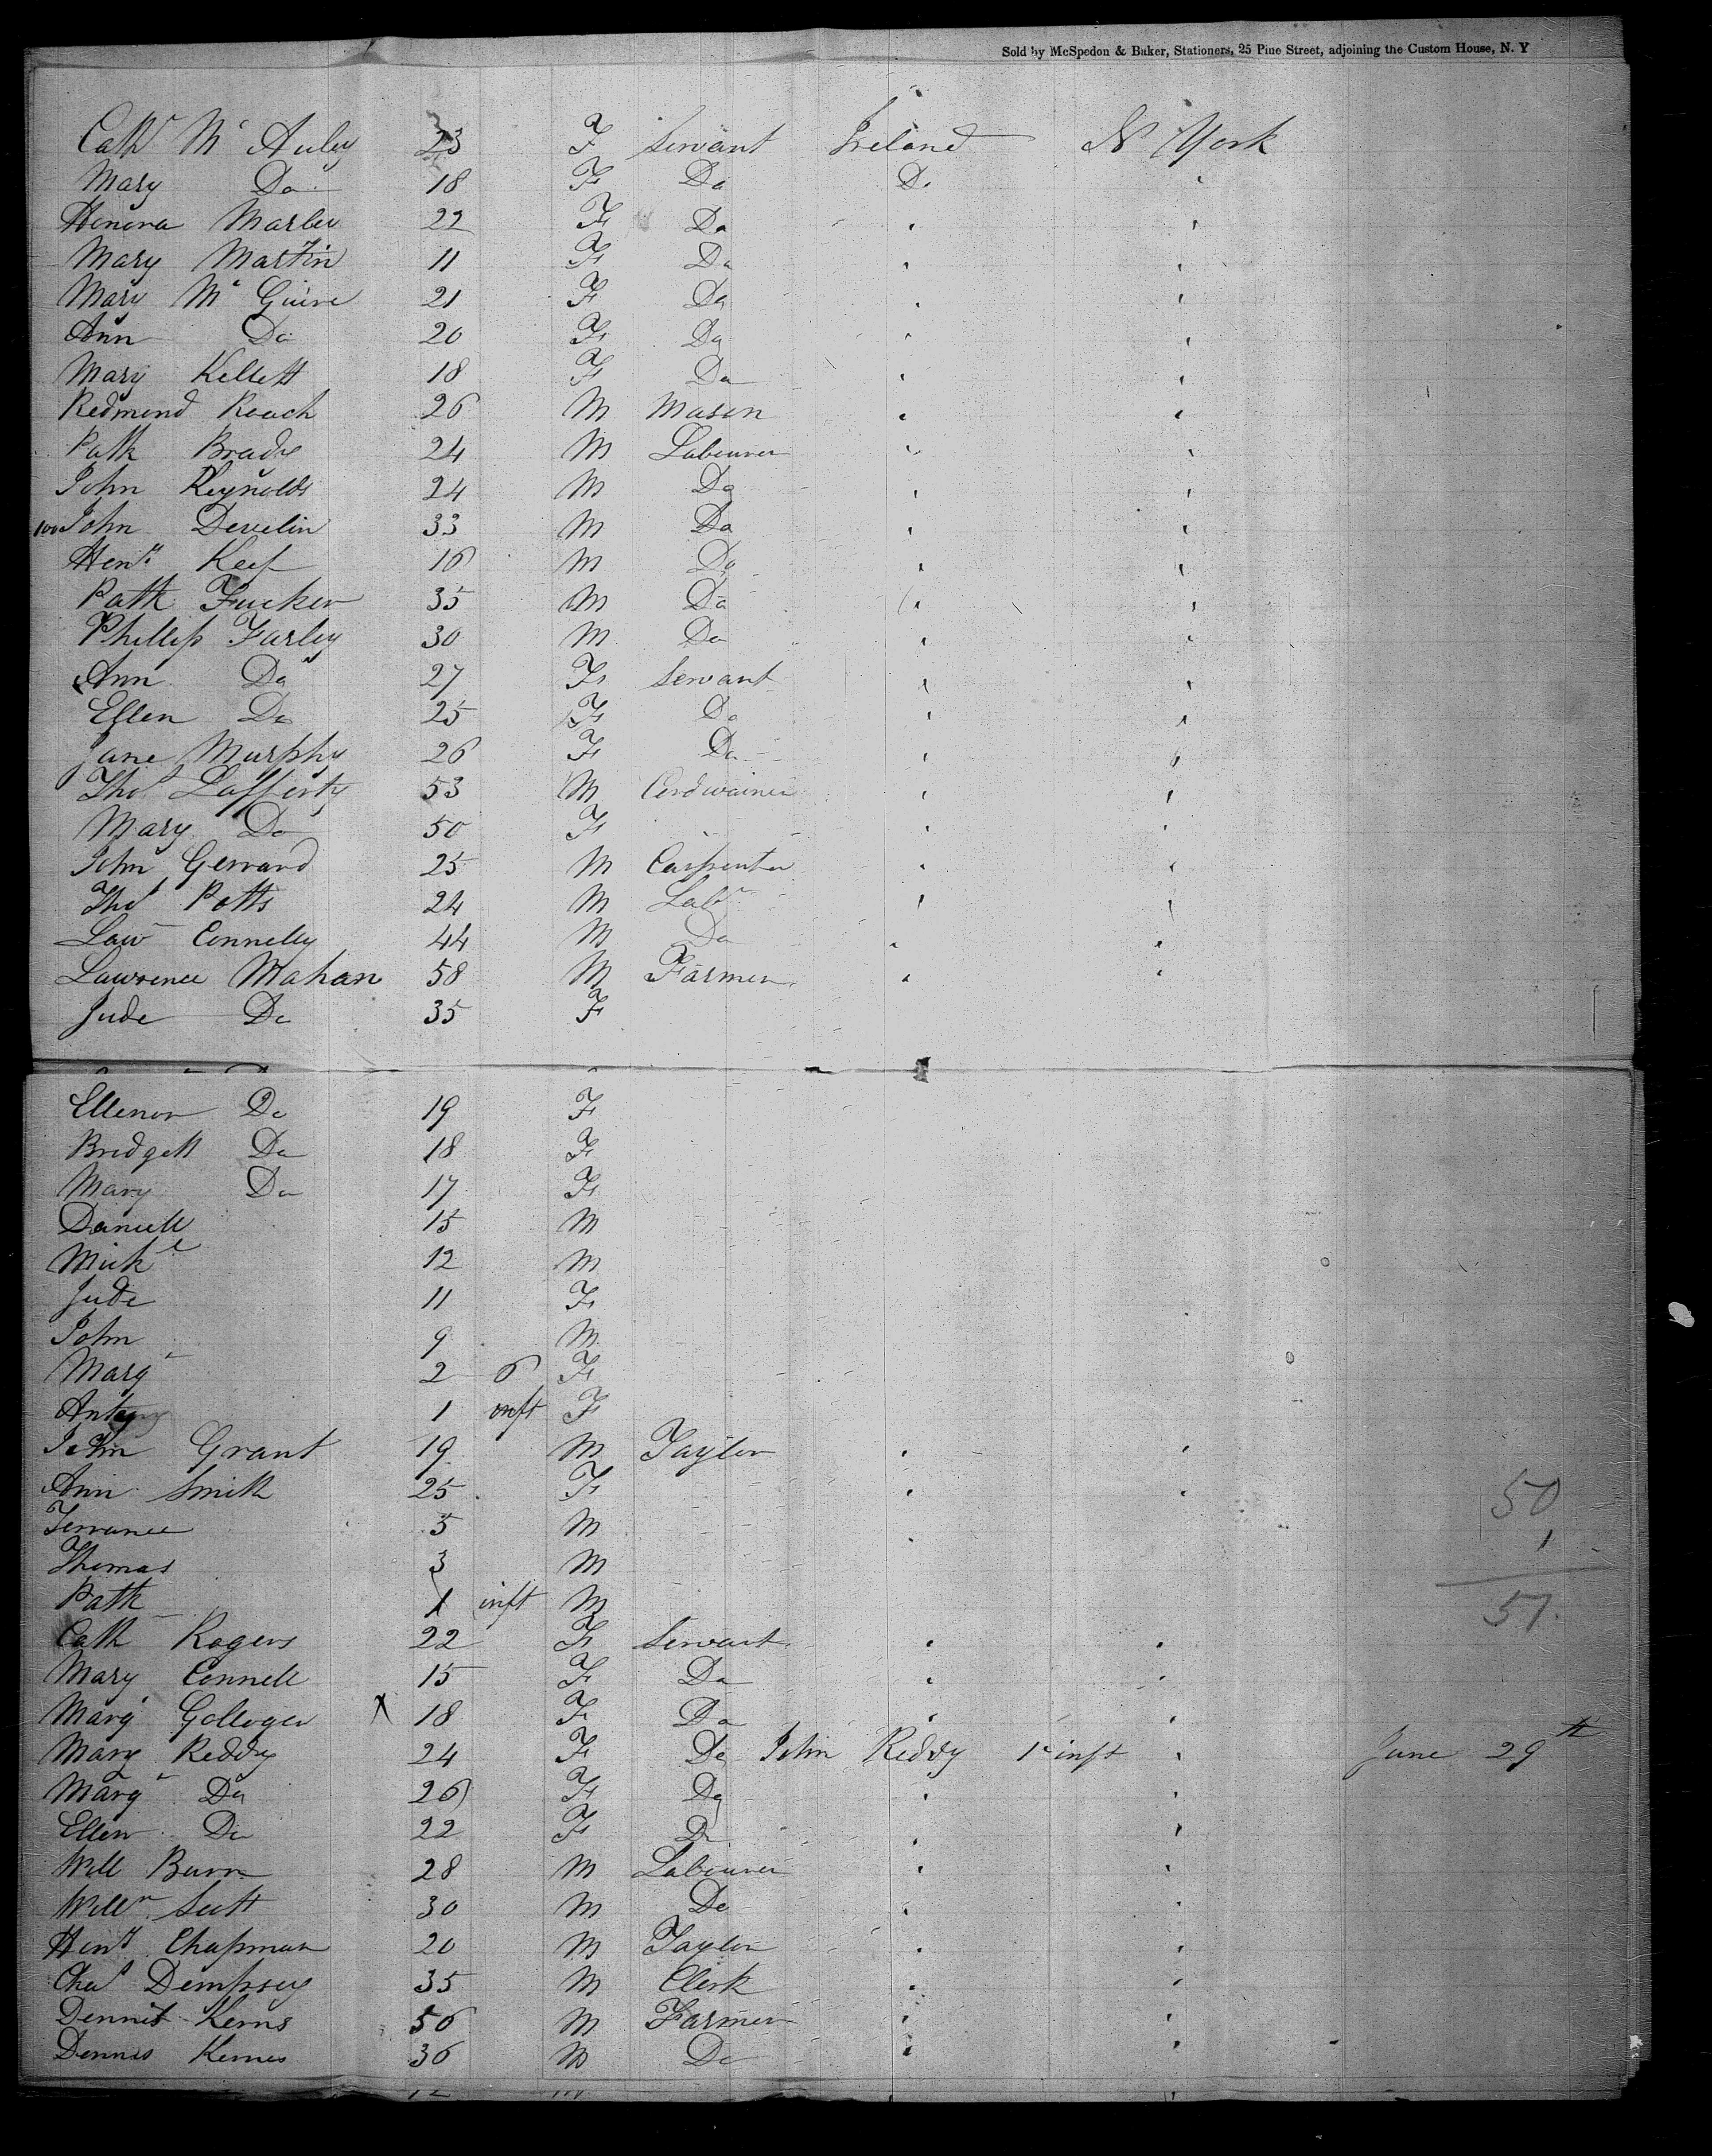 Sold by McSpedon & Baker, Stationers, 25 Pine Street, adjoining the Custom House, N. Y
Cathr Mc Auley 23 F Servant Ireland N York
Mary Do 18 F Do Do
Honora Marley 22 F Do
Mary Martin 11 F Do
Mary Mc Guire 21 F Do
Ann Do 20 F Do
Mary Kellett 18 F Do
Redmond Roach 26 M Mason
Patk Brady 24 M Labourer
John Reynolds 24 M Do
100 John Develin 33 M Do
Heny Keef 16 M Do
Patk Tucker 35 M Do
Phillip Farley 30 M Do
Ann Do 27 F Servant
Ellen Do 25 F Do
Jane Murphy 26 F Do
Thos Lafferty 53 M Cordwainer
Mary Do 50 F
John Gerrard 25 M Carpenter
Thos Potts 24 M Labr
Law Connelly 44 M Do
Lawrence Mahan 58 M Farmer
Jude Do 35 F
Ellenor Do 19 F
Bridgett Do 18 F
Mary Do 17 F
Daniell 15 M
Michl 12 M
Jude 11 F
John 9 M
Margt 2 6 F
Antony 1 inft F
John Grant 19 M Taylor
Ann Smith 25 F
50
Terrance 5 M
1
Thomas 3 M
Patk 1 inft M
51
Cath Rogers 22 F Servant
Mary Connell 15 F Do
Margt Golloger X 18 F Do
Mary Reddy 24 F Do John Reddy 1 inft June 29th
Margt Do 26 F Do
Ellen Do 22 F Do
Will Burn 28 M Labourer
Willm Scott 30 M Do
Heny Chapman 20 M Taylor
Chas Dempsey 35 M Clerk
Dennis Kerns 56 M Farmer
Dennis Kernes 36 M Do